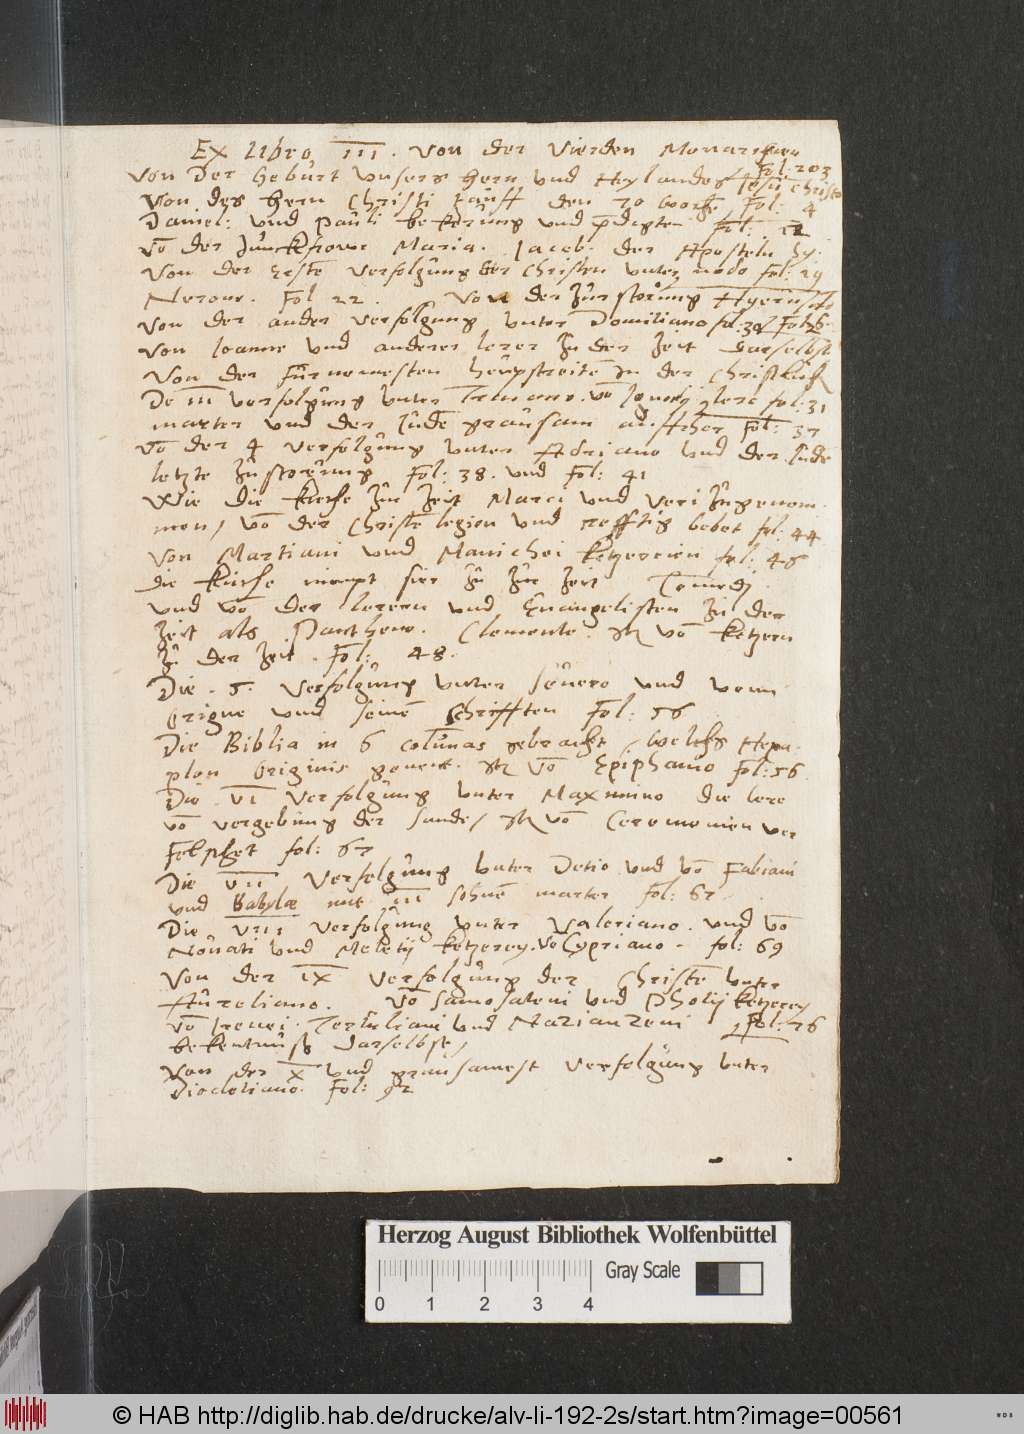 Ex Libro III. Von der Vierden Monarchie
Von Der geburt Unsers hern und Heylandes Jesu Christo Fol: 203
Von des hern Christi tauff den 70 woche Fol: 4
Daniel: und Pauli bekerung und predigten Fol: 12
vō der Junckfrowe Maria. Jacob: der Aposteln
Von der Erste verfolgung der Christen unter fol: 19
Nerone. Fol 22. Von der Zurstorung
von der ander verfolgung unter Domitiano fol: 30
von Joanne und anderer lerer zu der Zeit Darselbst
Von der furnemesten heupstreite in der Christlich
De III verfolgung unter Traiano. vō Ignatij lere fol: 31
marter und der Jude grausam auffrhor Fol: 37
vō der 4 verfolgung unter Adriano und der Jude
letzte Zustorung Fol: 38. und Fol: 41
Wie die Kirche zur Zeit Marci und Veri Zugenom
men, vō der Christē legion und gebet fol: 44
Von Martiani und Manichei Ketzereien fol: 46
die Kirche nimpt sier zu zur Zeit Comedj
und vō der lerern und Evangelisten zu der
Zeit als Pantheno. Clemente. vō Ketzern
zu der Zeit. Fol: 48.
Die. 5. Verfolgung unter Severo und vom
Origine und seinē Schrifften Fol: 56
Die Biblia in 6 columnas gebracht, welchs Hexa
plon Originis genent. vō Epiphanio Fol: 56.
Die. VI Verfolgung unter Maximino die lere
vō vergebung der sunde, vō Ceremonien ver
felschet fol: 67
Die VII Verfolgung unter Detio und vō Fabiani
und Babylæ mit III sohnē marter fol: 67
Die VIII verfolgung unter Valeriano. und vō
Novati und Meletij ketzerey. Vō Cypriano. fol: 69
Von der IX verfolgung der Christē unter
Aureliano. Vō Samosateni und Photij Ketzerey
vō Irenei. Tertuliani und Nazianzeni Fol: 76
bekentnuß Darselbst,
Von der X und grausamest verfolgung unter
Diocletiano. Fol: 92
Herzog August Bibliothek Wolfenbüttel
Gray Scale
0 1 2 3 4
© HAB http://diglib.hab.de/drucke/alv-li-192-2s/start.htm?image=00561